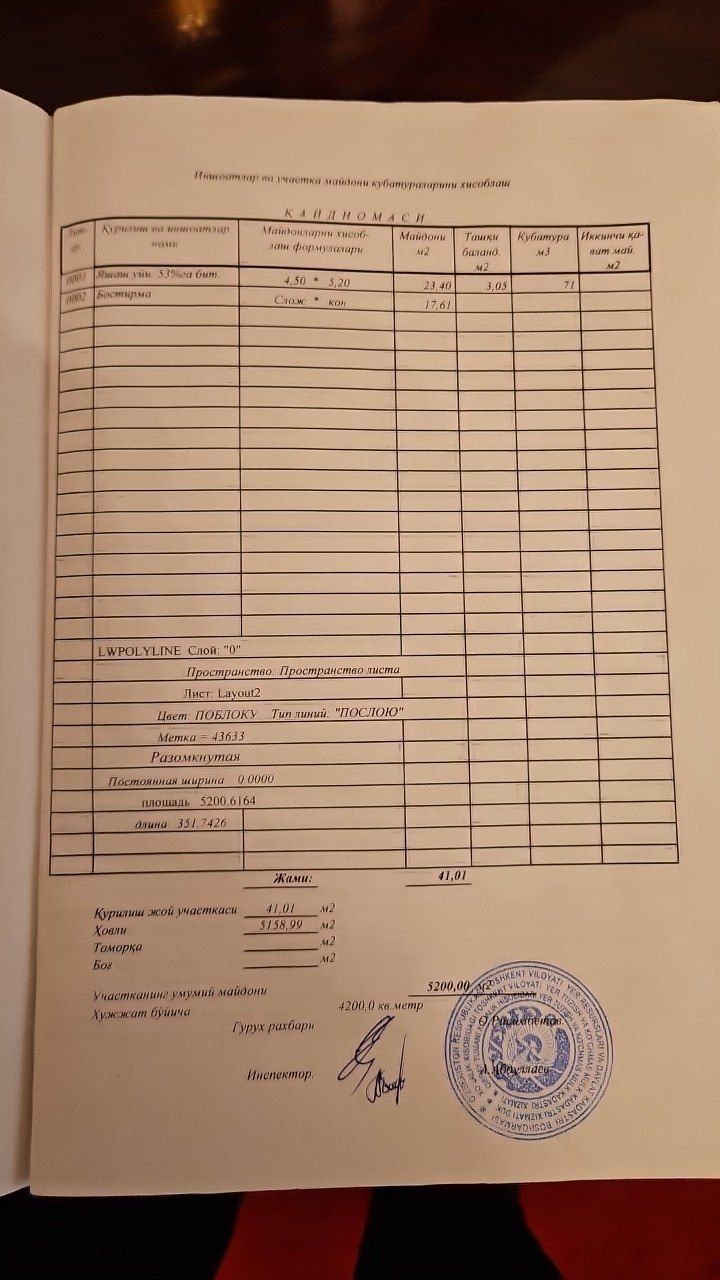 Иншоатлар ва участка майдони кубатураларини хисоблаш
ҚАЙДНОМАСИ
Лит-ер Қурилиш ва иншоатлар номи Майдонларни хисоб-лаш формулалари Майдони м2 Ташқи баланд. м2 Кубатура м3 Иккинчи қа-ват май. м2
0001 Яшаш уйи. 53%га бит. 4,50 * 5,20 23,40 3,05 71
0002 Бостирма Слож * кон 17,61
LWPOLYLINE Слой: "0"
Пространство: Пространство листа
Лист: Layout2
Цвет: ПОБЛОКУ Тип линий: "ПОСЛОЮ"
Метка = 43633
Разомкнутая
Постоянная ширина 0.0000
площадь 5200.6164
длина 351.7426
Жами: 41,01
Қурилиш жой участкаси 41,01 м2
Ховли 5158,99 м2
Томорқа м2
Боғ м2
Участканинг умумий майдони 5200,00 м2
Хужжат бўйича 4200,0 кв.метр
Гурух рахбари
Инспектор. А.Абдуллаев